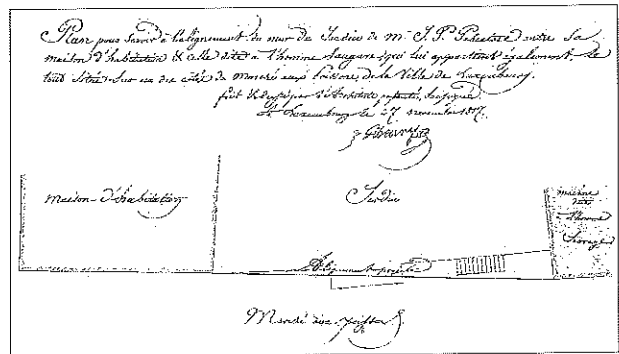 Plan pour servir à l'alignement du mur de Jardin de M. J. P. Pescatore entre Sa
maison d'habitation & celle dite à l'homme Sauvage qui lui appartient également, le
tout situé sur un des côtés du marché aux poissons de la Ville de Luxembourg.
fait & dressé par l'Architecte
à Luxembourg le 27 novembre
maison d'habitation
Jardin
maison
dite
à
l'homme
Sauvage
Alignement projeté
Marché aux poissons